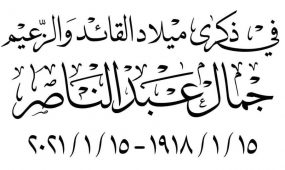 في ذكرى ميلاد القائد والزعيم
جمال عبد الناصر
١٩١٨/١/١٥ - ٢٠٢١/١/١٥